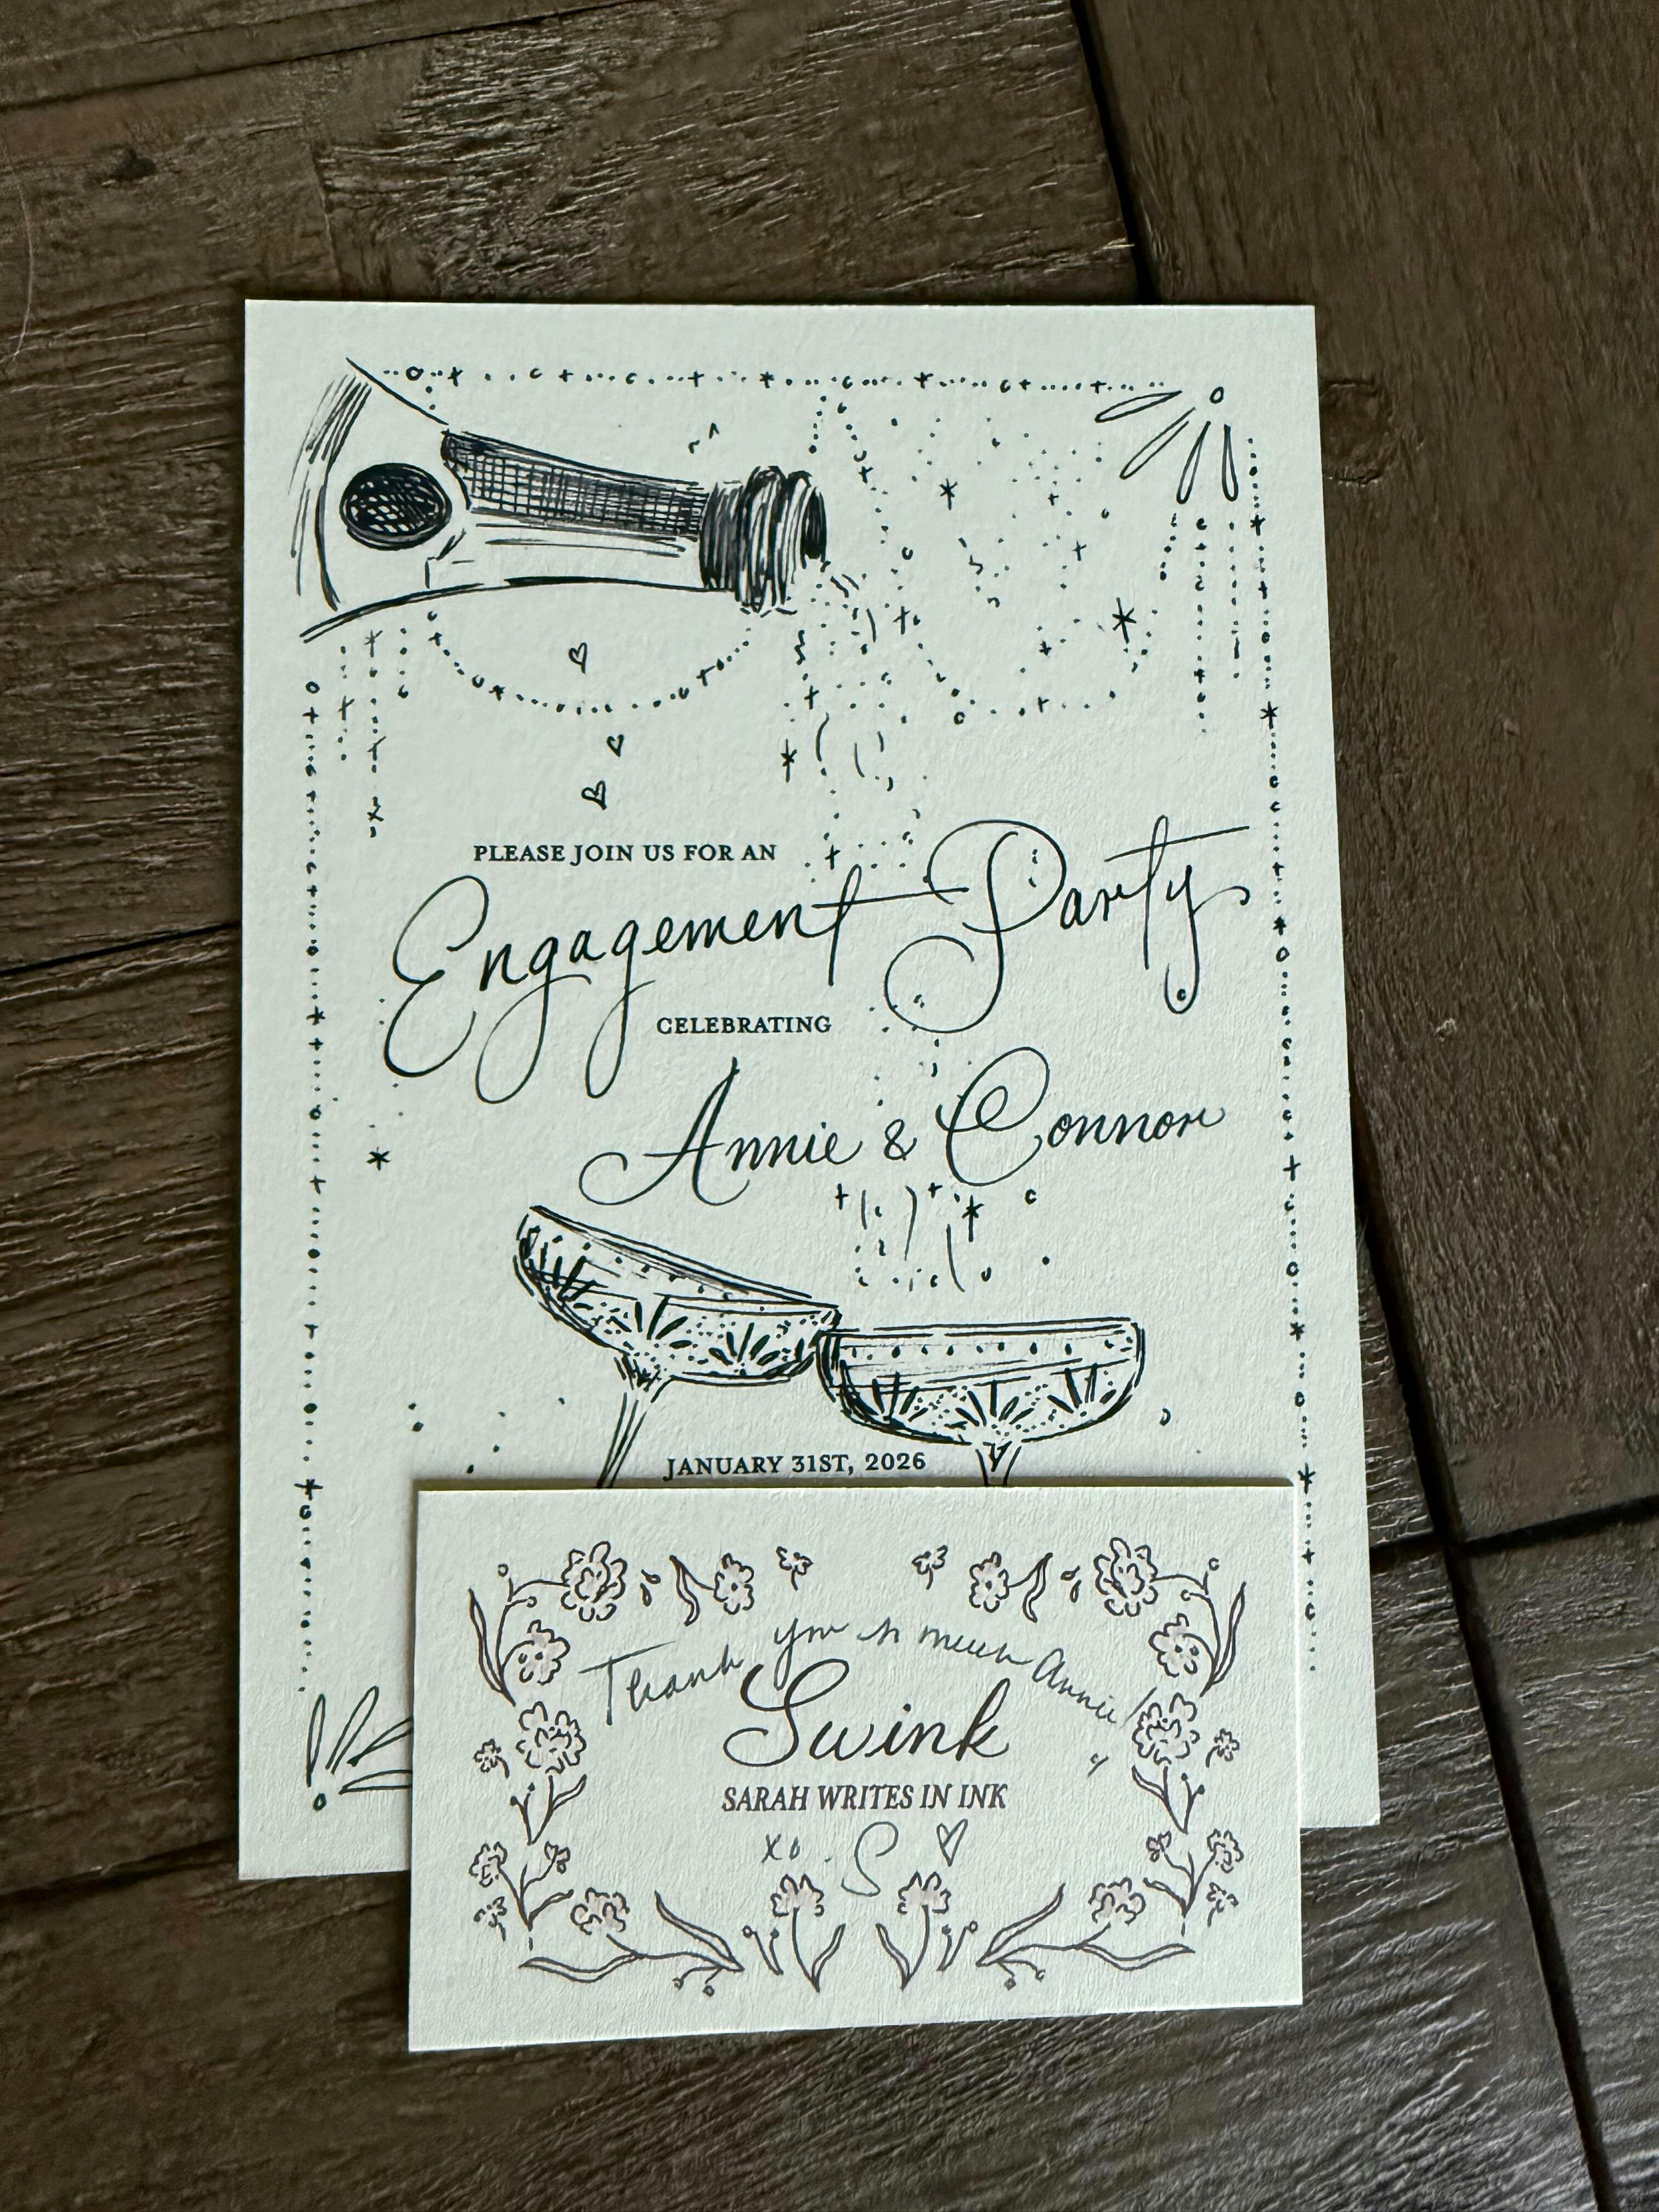 PLEASE JOIN US FOR AN
Engagement Party
CELEBRATING
Annie & Connor
JANUARY 31ST, 2026
Thank you so much Annie!
Swink
SARAH WRITES IN INK
xo. S